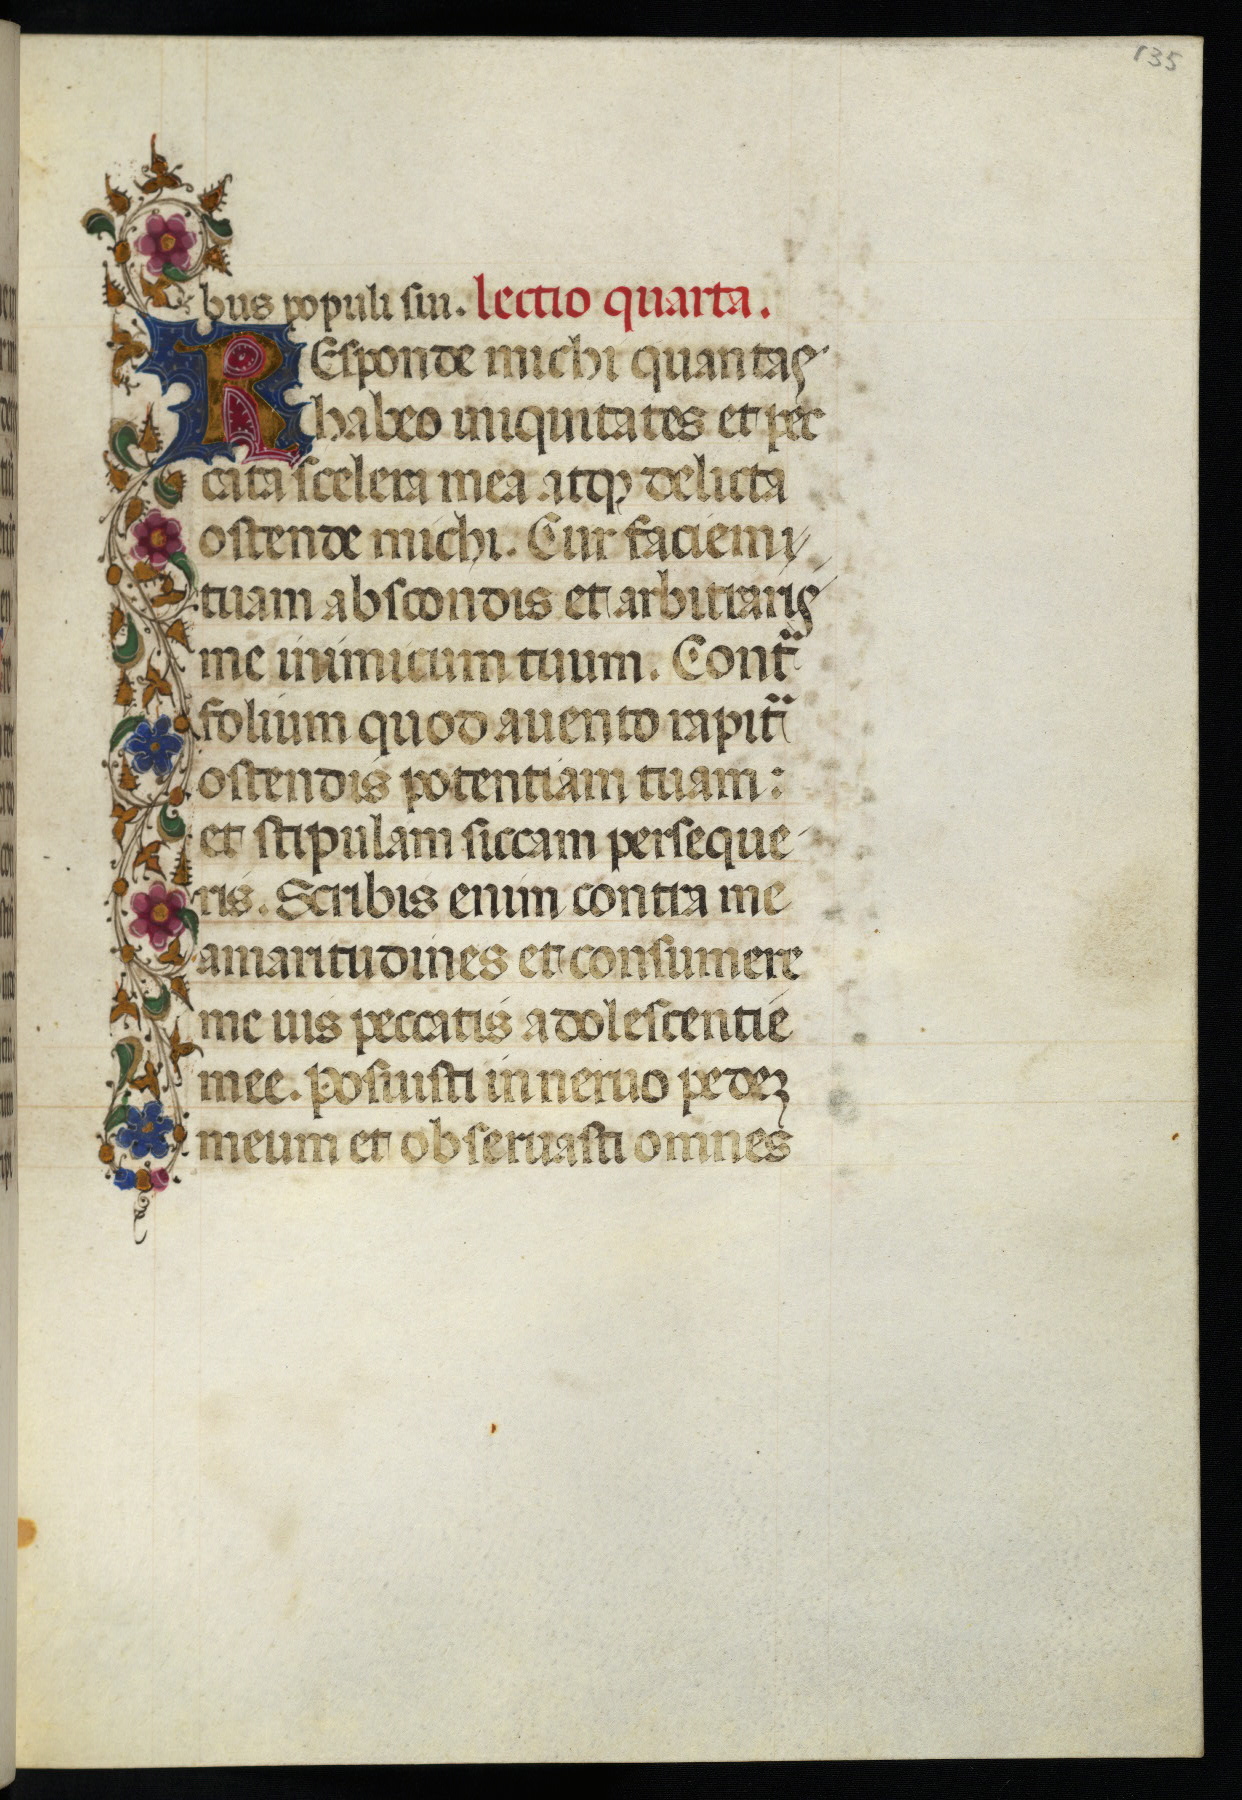 135
bus populi sui. lectio quarta.
REsponde michi quantas
habeo iniquitates et pec
cata scelera mea atqꝫ delicta
ostende michi. Cur faciem
tuam abscondis et arbitraris
me inimicum tuum. Cont̃
folium quod a uento rapit̃
ostendis potentiam tuam:
et stipulam siccam perseque
ris. Scribis enim contra me
amaritudines et consumere
me uis peccatis adolescentie
mee. Posuisti in neruo pedeꝫ
meum et obseruasti omnes